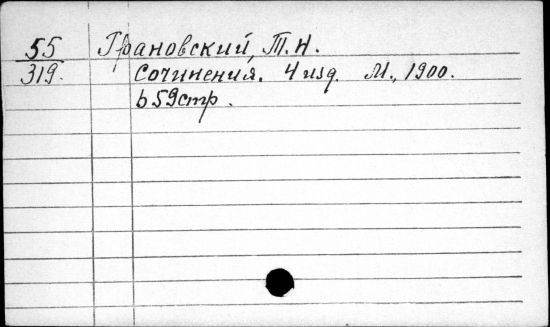 55 Грановский, Т.Н.
319. Сочинения. 4 изд. М., 1900.
659 стр.